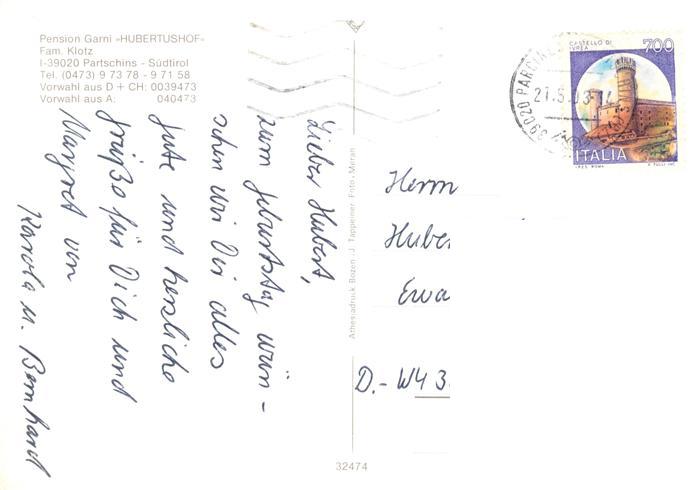 Pension Garni »HUBERTUSHOF«
Fam. Klotz
I-39020 Partschins - Südtirol
Tel. (0473) 9 73 78 - 9 71 58
Vorwahl aus D + CH: 0039473
Vorwahl aus A: 040473
Lieber Hubert,
zum Geburtstag wün-
schen wir Dir alles
Gute und herzliche
Grüße für Dich und
Margret von
Karola u. Bernhard
Athesiadruck Bozen - J. Tappeiner Foto - Meran
32474
CASTELLO DI
IVREA
700
ITALIA
39020
21.5.93
Herrn
Huber
Ewa
D.-W4 3